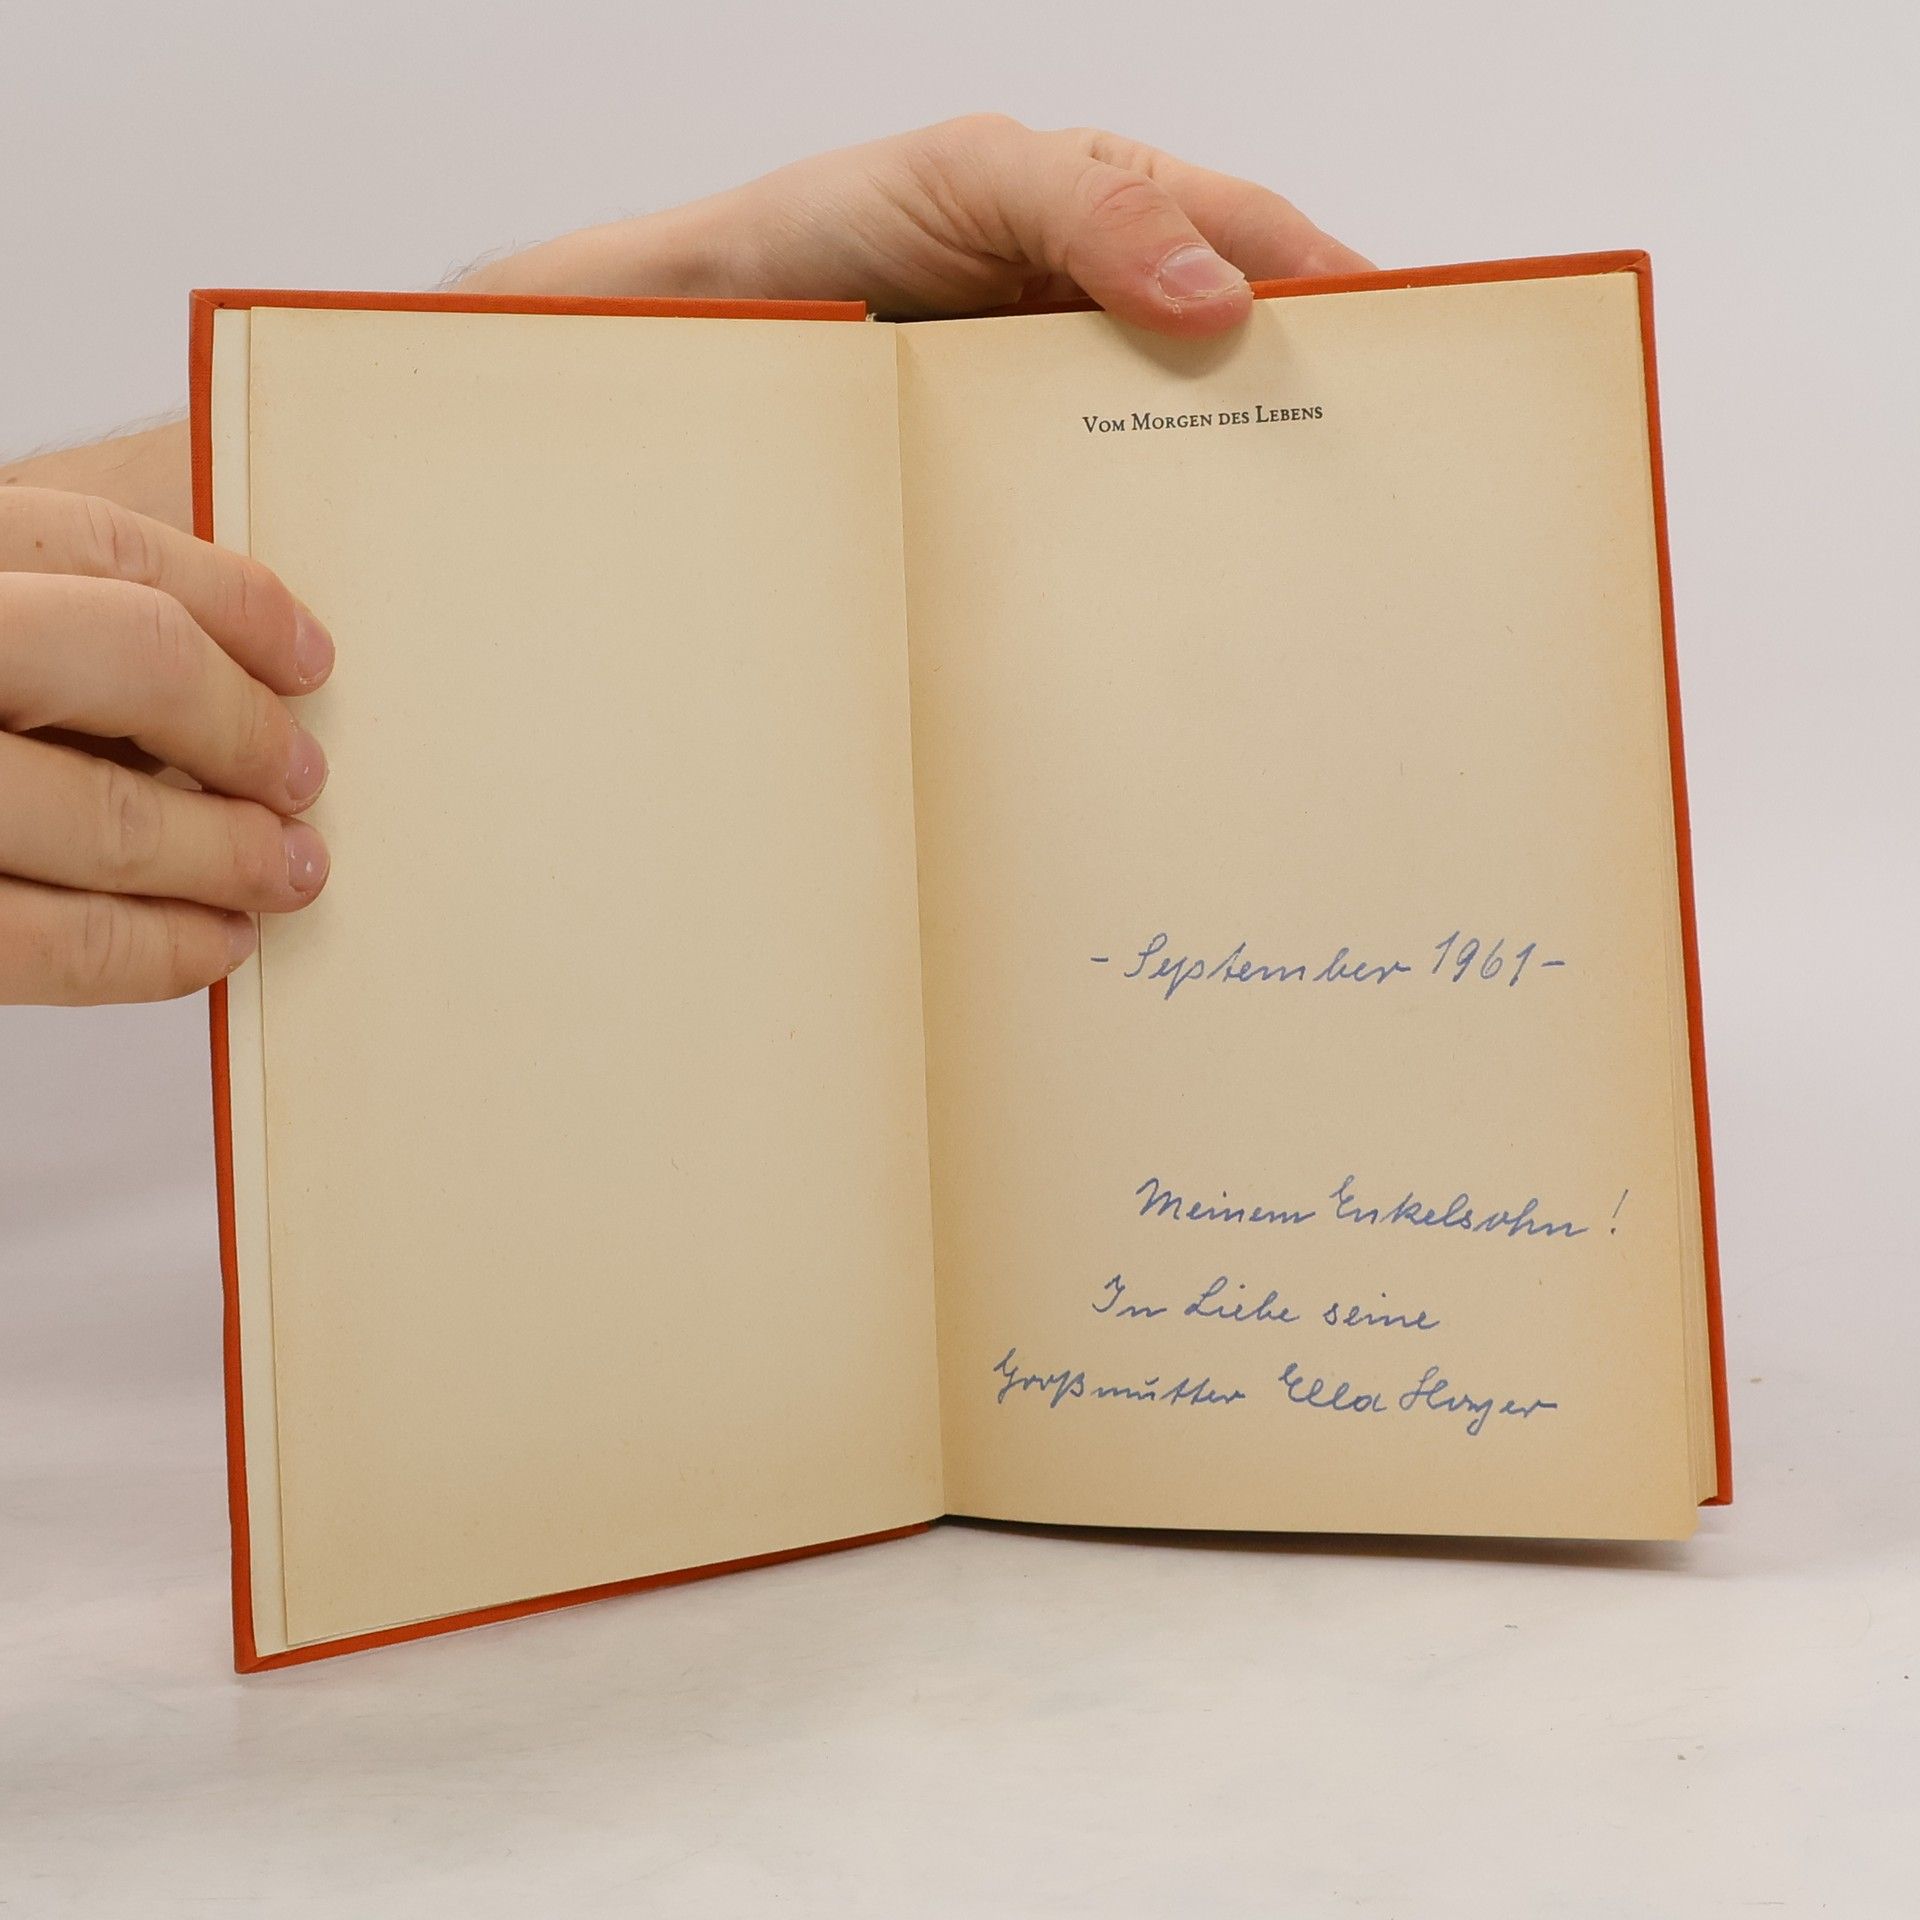 Vom Morgen des Lebens
- September 1961 -
Meinem Enkelsohn!
In Liebe seine
Großmutter Ella Hoyer